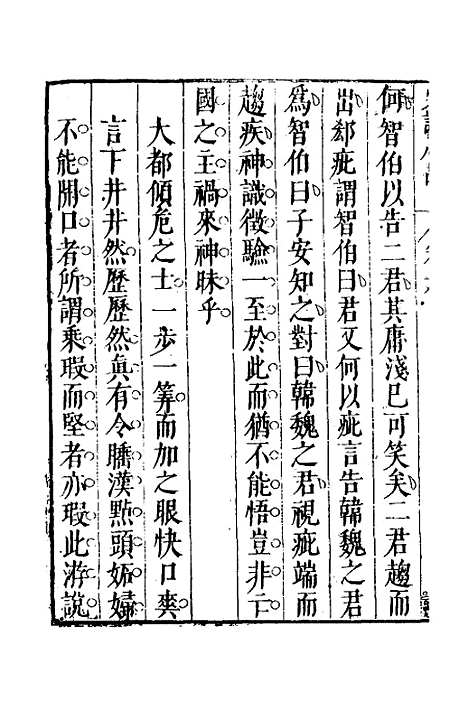 何智伯以告二君其庸淺已可笑矣二君趨而
出郄疵謂智伯曰君又何以疵言告韓魏之君
爲智伯曰子安知之對曰韓魏之君視疵端而
趨疾神識徵驗一至於此而猶不能悟豈非亡
國之主禍來神昧乎
大都傾危之士一步一筭而加之眼快口爽
言下井井然歷歷然眞有令聽漢點頭妬婦
不能開口者所謂乘瑕而堅者亦瑕此游說